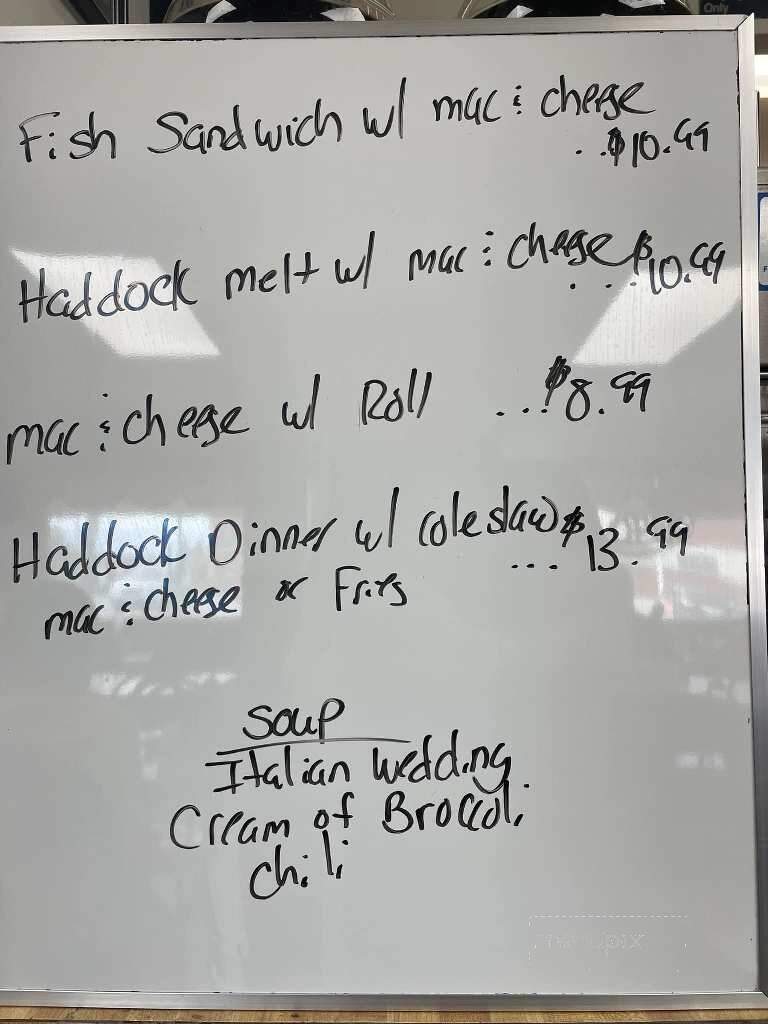 Only
Fish Sandwich w/ mac & cheese
...$10.99
Haddock melt w/ mac & cheese $
...10.99
mac & cheese w/ Roll ...$8.99
Haddock Dinner w/ coleslaw $
... 13.99
mac & cheese or Fries
Soup
Italian Wedding
Cream of Broccoli
chili